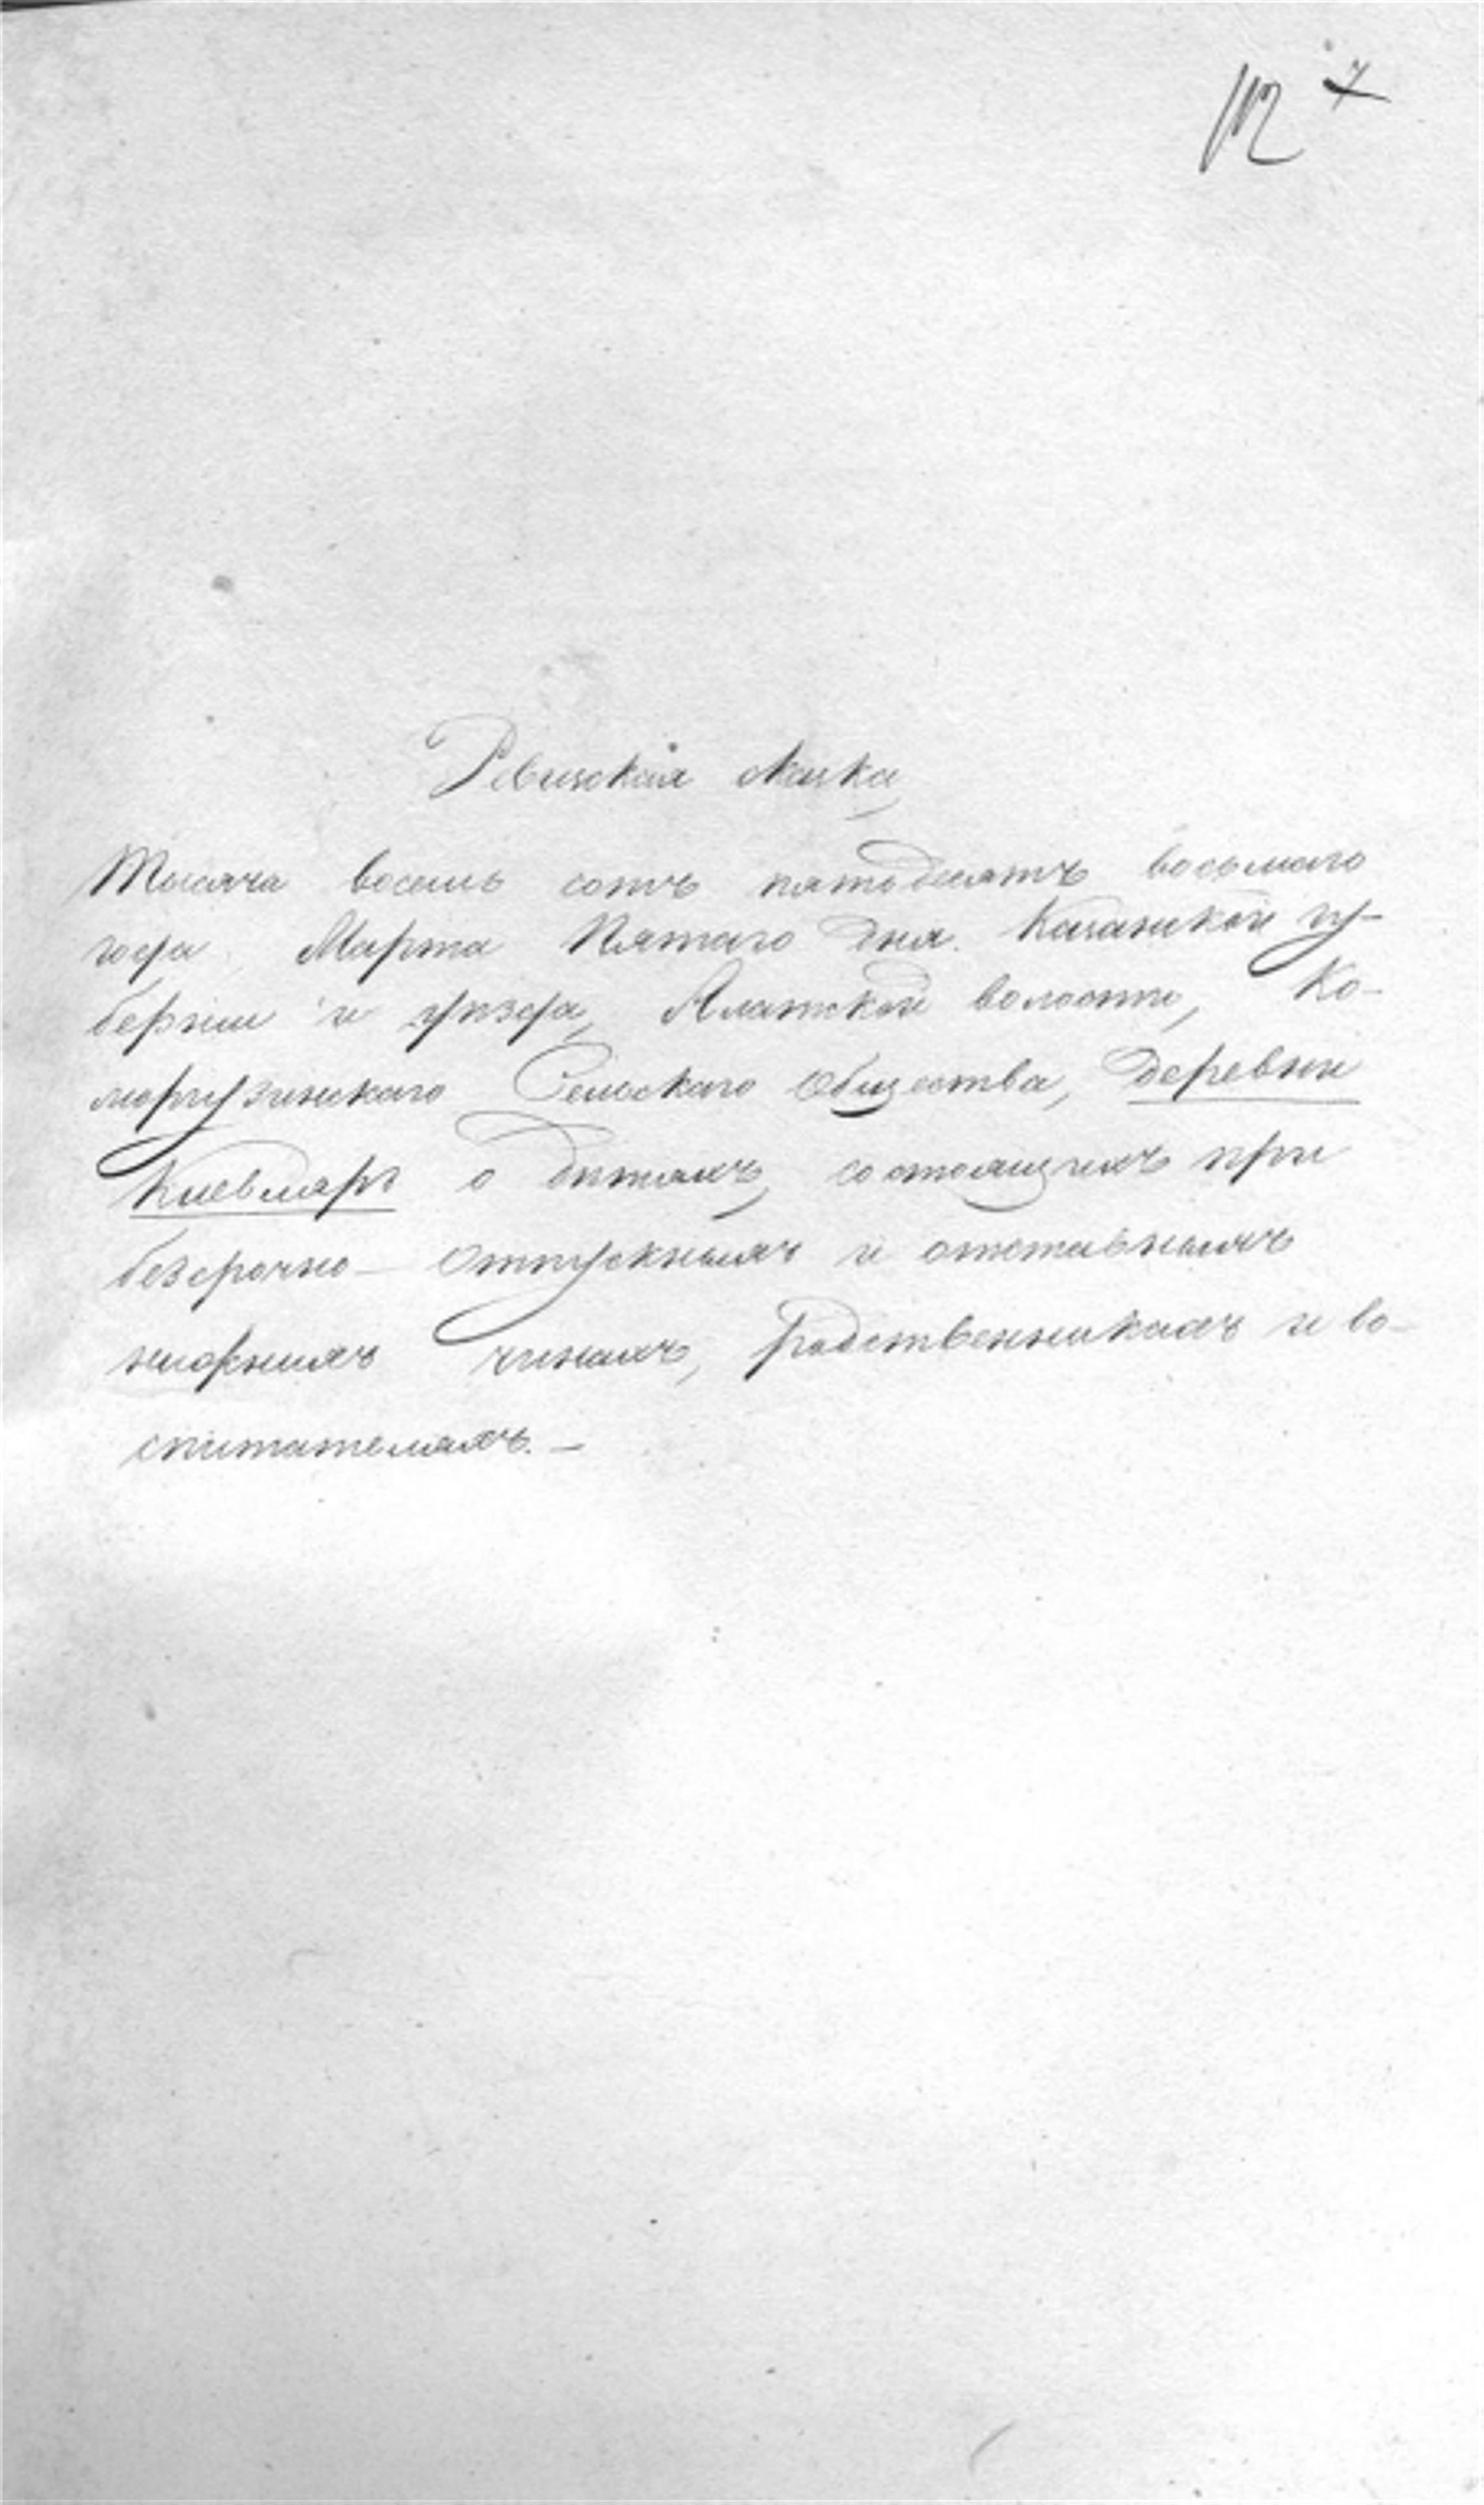 Ревизская сказка,
Тысяча восемь сотъ пятьдесятъ восьмаго
года Марта Пятаго дня. Казанской гу-
берніи и уѣзда, Алатской волости, Ко-
моргузинскаго Сельскаго Общества, деревни
о дѣтяхъ, состоящихъ при
безсрочно-отпускныхъ и отставныхъ
нижнихъ чинахъ, родственникахъ и во-
спитателяхъ. —